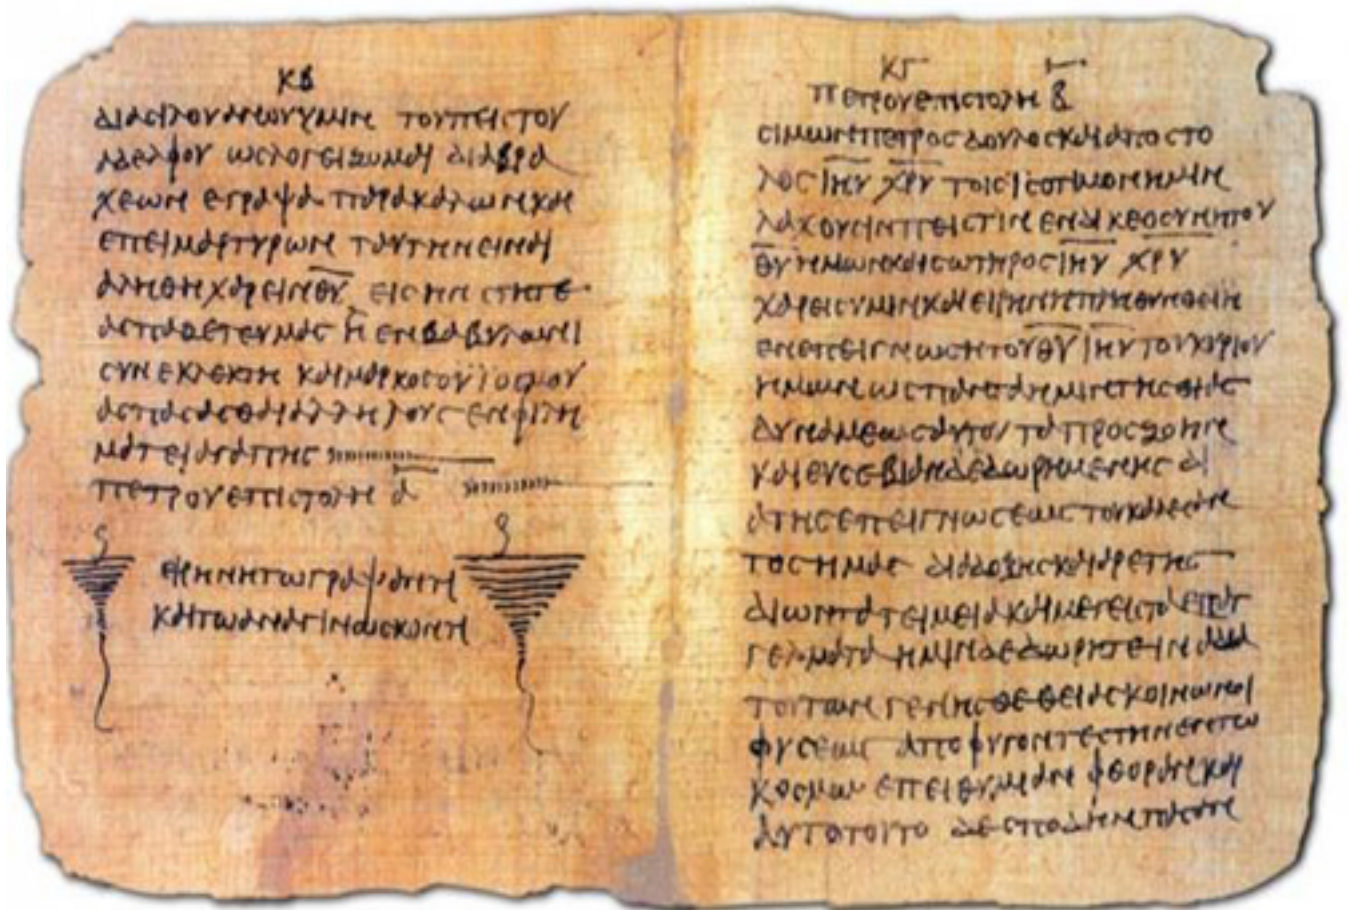 ΚΒ
ΔΙΑϹΙΛΟΥΑΝΟΥΥΜΙΝ ΤΟΥΠΕΙϹΤΟΥ
ΑΔΕΛΦΟΥ ΩϹΛΟΓΕΙΖΟΜΑΙ ΔΙΑΒΡΑ
ΧΕΩΝ ΕΓΡΑΨΑ ΠΑΡΑΚΑΛΩΝΚΑΙ
ΕΠΕΙΜΑΡΤΥΡΩΝ ΤΑΥΤΗΝΕΙΝΑΙ
ΑΛΗΘΗΧΑΡΕΙΝΘ̅Υ̅ ΕΙϹΗΝ ϹΤΗΤΕ
ΑϹΠΑΖΕΤΕΥΜΑϹ Η ΕΝΒΑΒΥΛΩΝΙ
ϹΥΝΕΚΛΕΚΤΗ ΚΑΙΜΑΡΚΟϹΟΥΪΟϹΜΟΥ
ΑϹΠΑϹΑϹΘΑΙΑΛΛΗΛΟΥϹ ΕΝΦΙΛΗ
ΜΑΤΕΙΑΓΑΠΗϹ
ΠΕΤΡΟΥΕΠΙϹΤΟΛΗ Α̅
ΕΙΡΗΝΗΤΩΓΡΑΨΑΝΤΙ
ΚΑΙΤΩΑΝΑΓΙΝΩϹΚΟΝΤΙ
ΚΓ
ΠΕΤΡΟΥΕΠΙϹΤΟΛΗ Β̅
ϹΙΜΩΝΠΕΤΡΟϹΔΟΥΛΟϹΚΑΙΑΠΟϹΤΟ
ΛΟϹΙ̅Η̅Υ̅ Χ̅Ρ̅Υ̅ ΤΟΙϹΙϹΟΤΙΜΟΝΗΜΙΝ
ΛΑΧΟΥϹΙΝΠΕΙϹΤΙΝ ΕΝΔΙΚΕΟϹΥΝΗΤΟΥ
Θ̅Υ̅ΗΜΩΝΚΑΙϹΩΤΗΡΟϹΙ̅Η̅Υ̅ Χ̅Ρ̅Υ̅
ΧΑΡΕΙϹΥΜΙΝΚΑΙΕΙΡΗΝΗΠΛΗΘΥΝΘΕΙΗ
ΕΝΕΠΕΙΓΝΩϹΗΤΟΥΘ̅Υ̅Ι̅Η̅Υ̅ΤΟΥΚΥΡΙΟΥ
ΗΜΩΝ ΩϹΠΑΝΤΑΗΜΙΝΤΗϹΘΙΑϹ
ΔΥΝΑΜΕΩϹΑΥΤΟΥΤΑΠΡΟϹΖΩΗΝ
ΚΑΙΕΥϹΕΒΙΑΝΔΕΔΩΡΗΜΕΝΗϹ ΔΙ
ΑΤΗϹΕΠΕΙΓΝΩϹΕΩϹΤΟΥΚΑΛΕϹΑΝ
ΤΟϹΗΜΑϹ ΔΙΑΔΟΞΗϹΚΑΙΑΡΕΤΗϹ
ΔΙΩΝΤΑΤΕΙΜΕΙΑΚΑΙΜΕΓΕΙϹΤΑΕΠΑΓ
ΓΕΛΜΑΤΑ ΗΜΙΝΔΕΔΩΡΗΤΕΙΝΑΔΙΑ
ΤΟΥΤΩΝ ΓΕΝΗϹΘΕΘΕΙΑϹΚΟΙΝΩΝΟΙ
ΦΥϹΕΩϹ ΑΠΟΦΥΓΟΝΤΕϹΤΗΝΕΝΤΩ
ΚΟϹΜΩ ΕΠΕΙΘΥΜΙΑΝ ΦΘΟΡΑΝΚΑΙ
ΑΥΤΟΤΟΥΤΟ ΔΕϹΠΟΔΗΝΠΑϹΑΝ